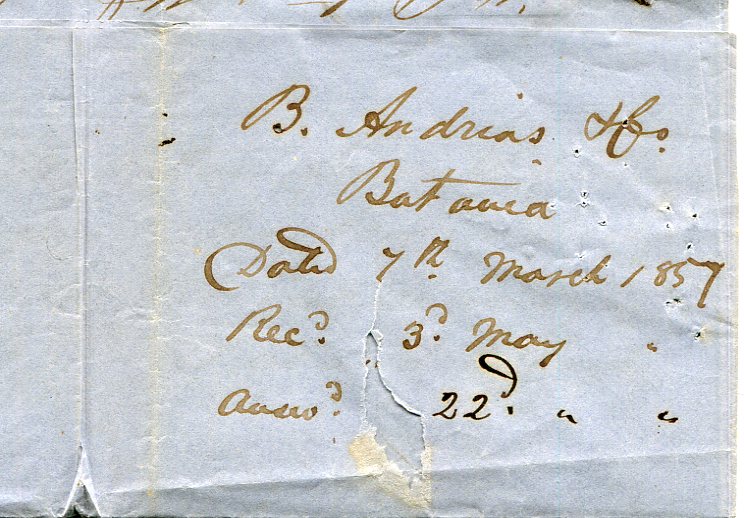 B. Andrias & Co.
Batavia
Dated 7th March 1857
Recd. 3d. May "
Answd. 22d. " "